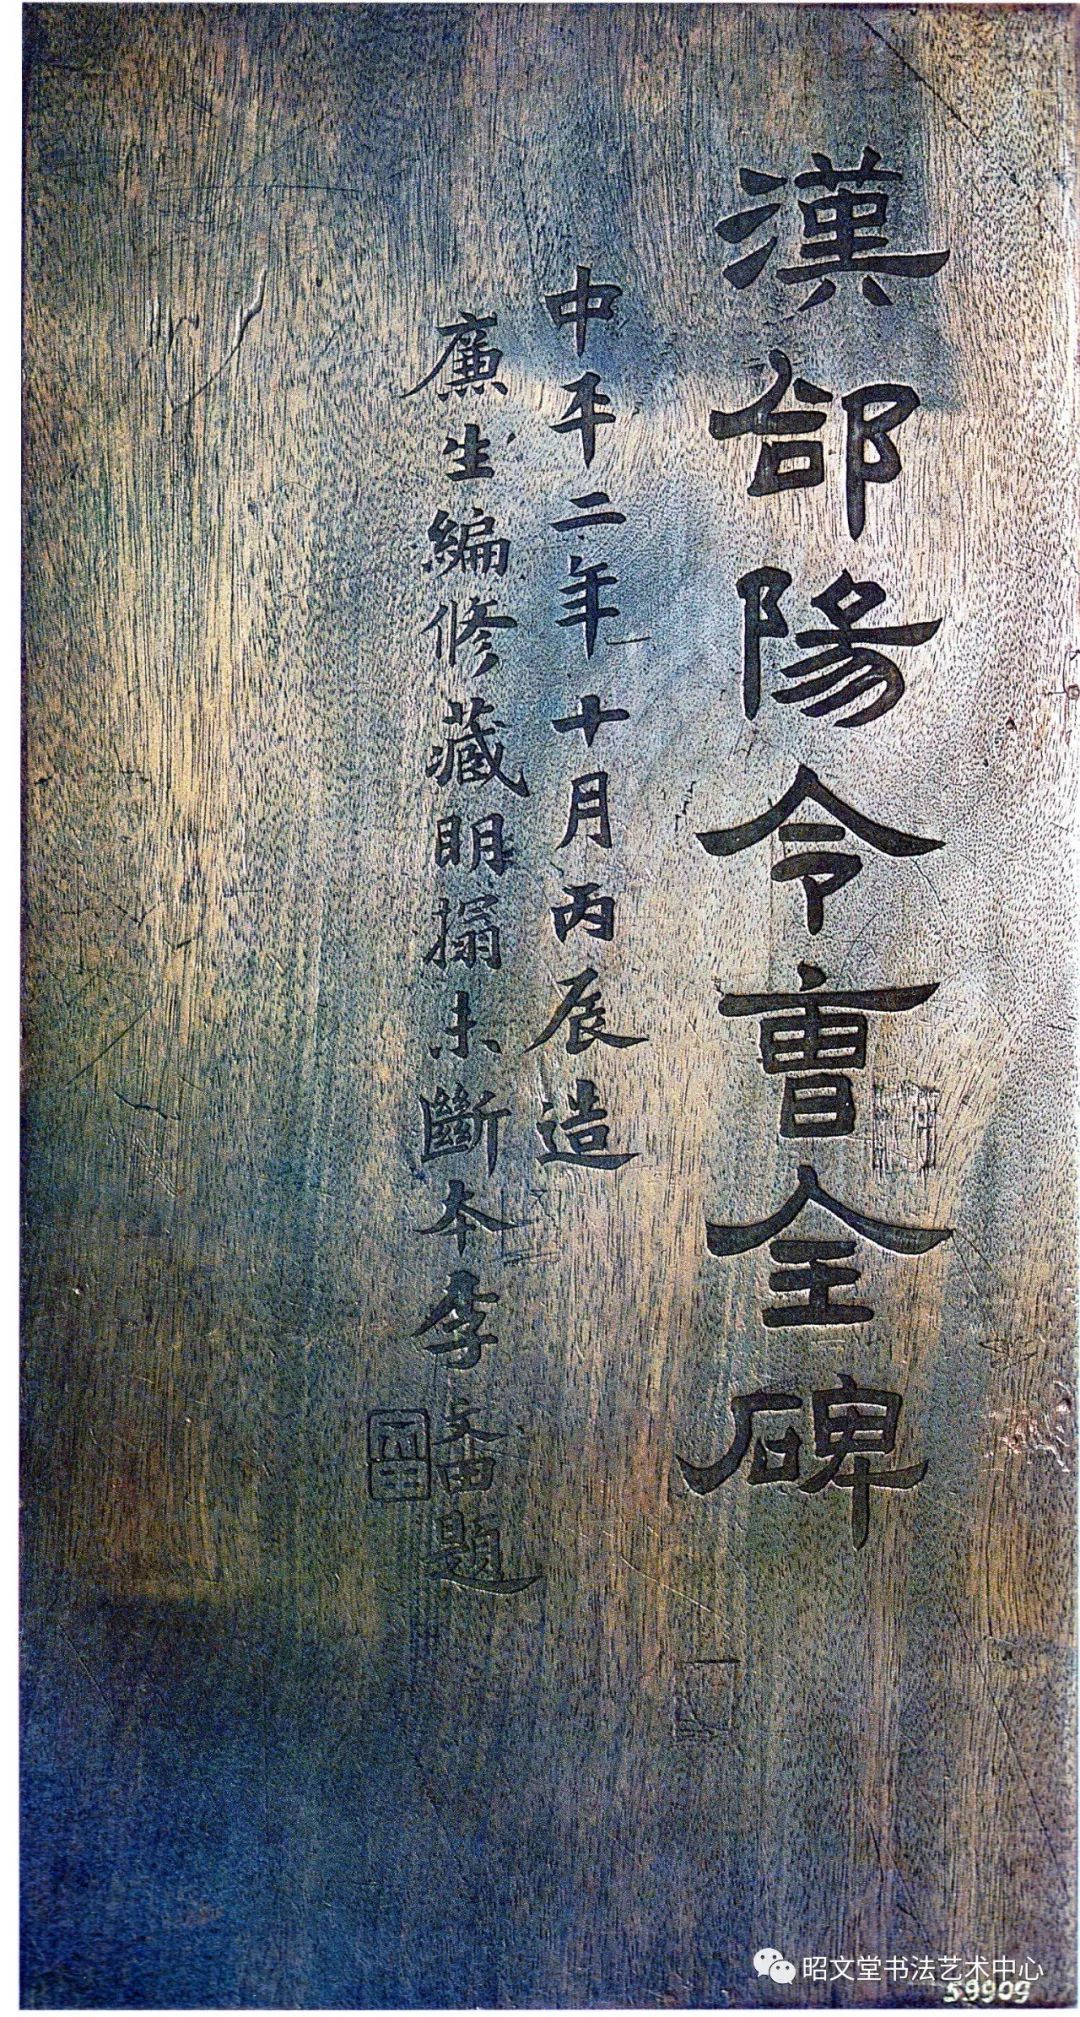 漢郃陽令曹全碑
中平二年十月丙辰造
廉生編修藏明搨未斷本李文田題
昭文堂书法艺术中心
59909